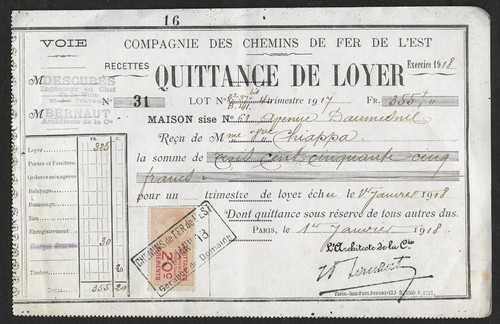 16
VOIE
COMPAGNIE DES CHEMINS DE FER DE L'EST
RECETTES
Exercice 1918
QUITTANCE DE LOYER
M DESCUBES
Ingénieur en Chef
de la Voie
M BERNAUT
Architecte de la Cie
N° 31
LOT trimestre 1917
FR. 355
MAISON sise N° 51 Avenue Daumesnil
Reçu de Mme Vve Chiappa
la somme de trois cent cinquante cinq
francs
pour un trimestre de loyer échu le 1er Janvier 1918
Dont quittance sous réserve de tous autres dus.
PARIS, le 1er Janvier 1918
L'Architecte de la Cie
FR. C.
Loyer 325
Portes et Fenêtres
Ordures ménagères
Balayage
Ramonage
Eau
Enregistrement 30
Timbre 20
355 20
CHEMINS de FER de l'EST
JANV 18
Service du Domaine
20c